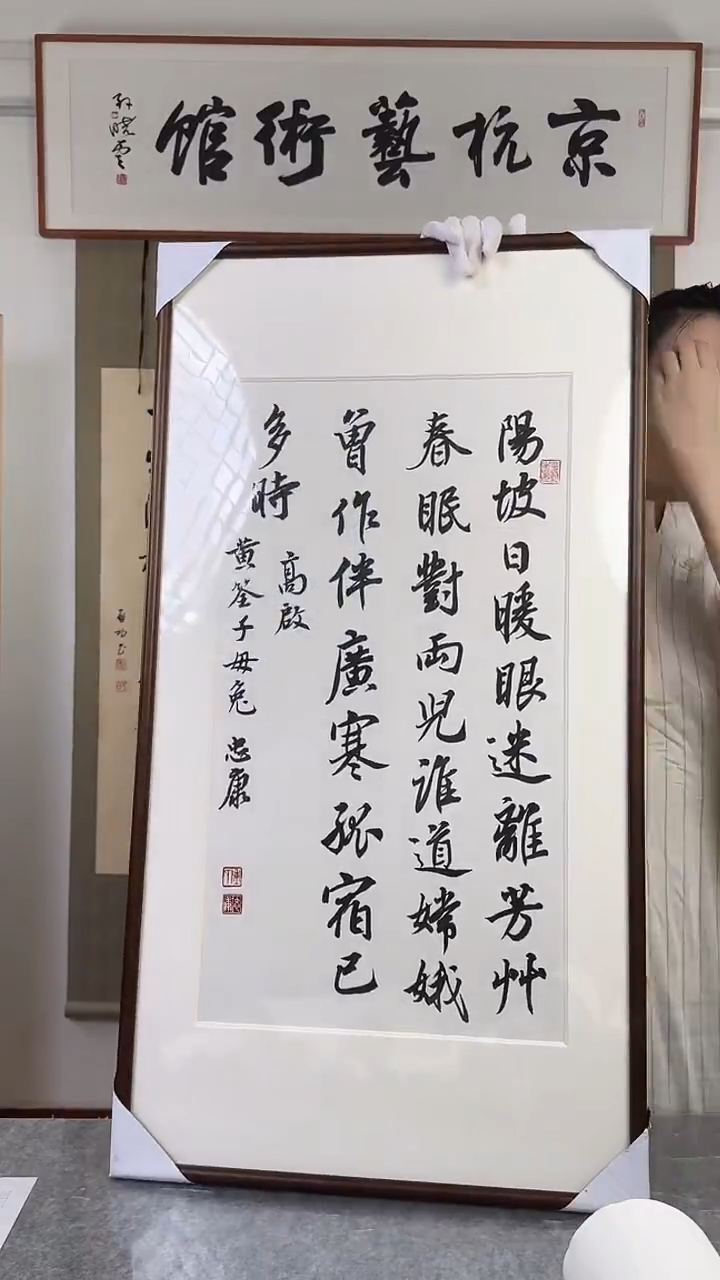 京杭藝術館
孫曉雲
陽坡日暖眼迷離芳艸
春眠對兩兒誰道嫦娥
曾作伴廣寒孤宿已
多時
高啟
黃筌子母兔 忠康